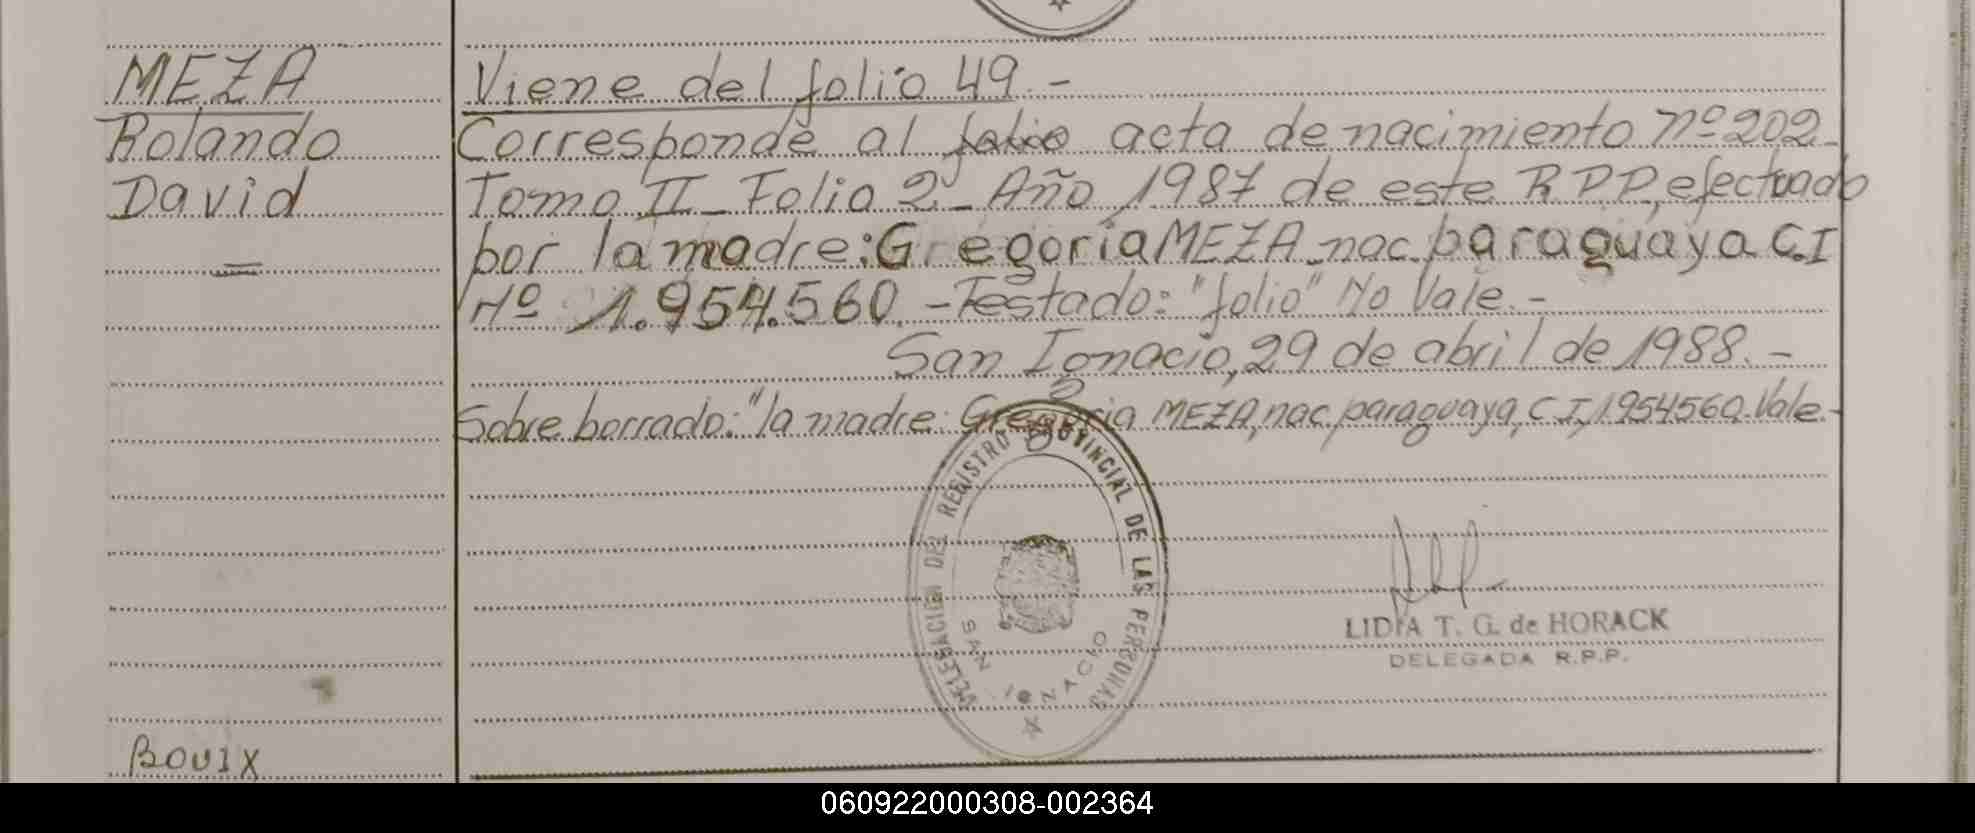 MEZA
Rolando
David
=
Viene del folio 49.-
Corresponde al folio acta de nacimiento nº 202-
Tomo II - Folio 2 - Año 1987 de este R.P.P., efectuado
por la madre: Gregoria MEZA nac. paraguaya C.I
Nº 1.954.560.-Testado: "folio" No Vale.-
San Ignacio, 29 de abril de 1988.-
Sobre borrado: "la madre: Gregoria MEZA, nac. paraguaya, C.I, 1.954560. Vale.-
DELEGACION DEL REGISTRO PROVINCIAL DE LAS PERSONAS
SAN IGNACIO
LIDIA T. G. de HORACK
DELEGADA R.P.P.
BOUIX
060922000308-002364